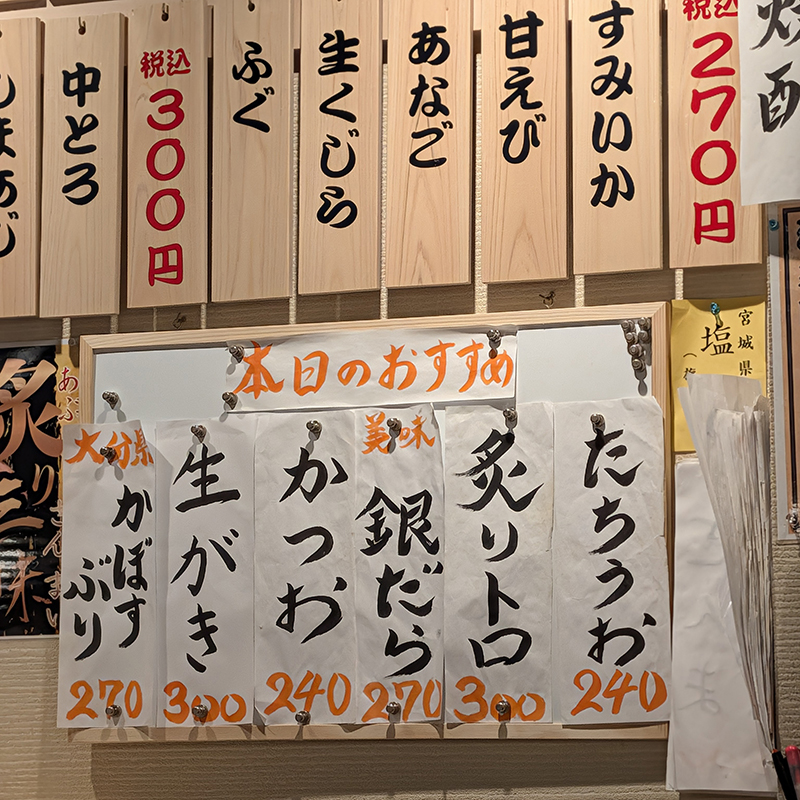 税込
270円
すみいか
甘えび
あなご
生くじら
ふぐ
税込
300円
中とろ
しまあじ
本日のおすすめ
たちうお
240
炙りトロ
300
美味
銀だら
270
かつお
240
生がき
300
大分県
かぼす
ぶり
270
宮城県
塩
炙
り